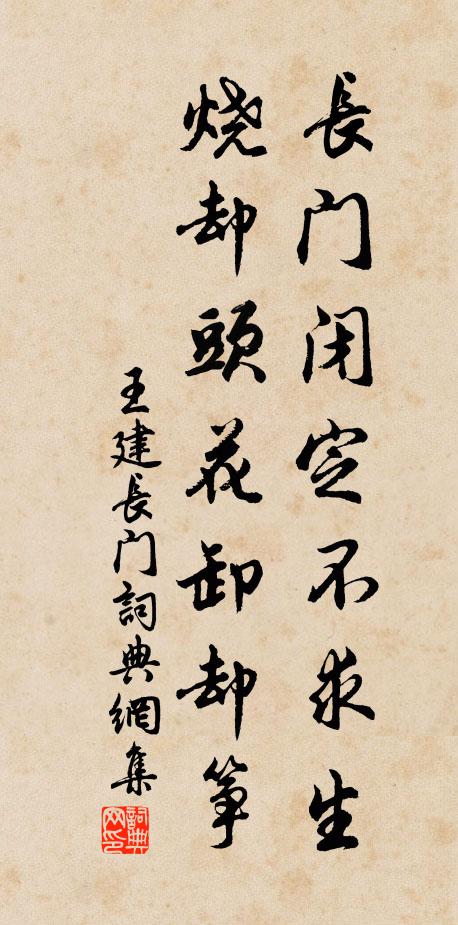 長门闭定不求生
烧却頭花卸却筝
王建長门詞典網集
詞典网印